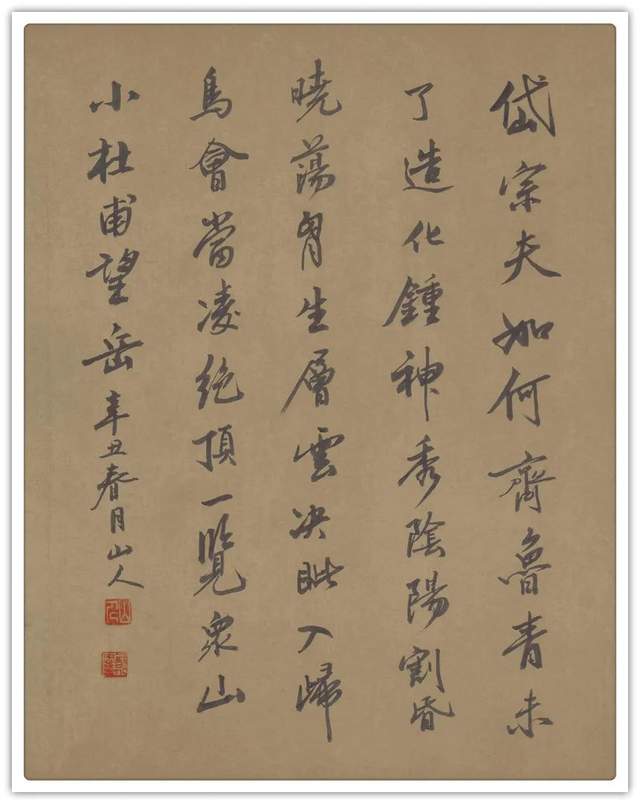 岱宗夫如何齊魯青未
了造化鍾神秀陰陽割昏
曉蕩胷生層雲決眥入歸
鳥會當凌絕頂一覽衆山
小杜甫望岳辛丑春月山人